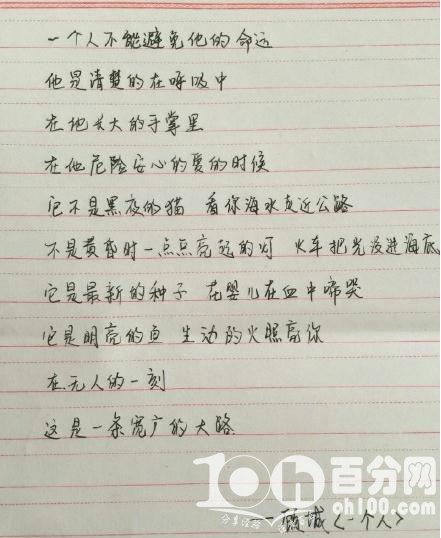 一个人不能避免他的命运
他是清楚的在呼吸中
在他长大的手掌里
在他危险安心的爱的时候
它不是黑夜的猫 看你海水走近公路
不是黄昏时一点点亮起的灯 火车把光浸进海底
它是最新的种子 在婴儿在血中啼哭
它是明亮的鱼 生动的火照亮你
在无人的一刻
这是一条宽广的大路
—顾城《一个人》
百分网
oh100.com